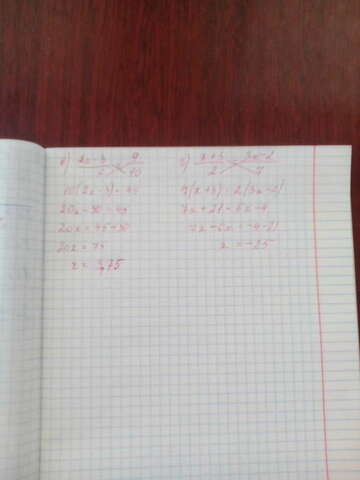 в) 2x-3/5 = 9/10
10(2x-3)=45
20x-30=45
20x=45+30
20x=75
x=3,75
г) x+3/2 = 3x-2/7
7(x+3)=2(3x-2)
7x+21=6x-4
7x-6x=-4-21
x=-25